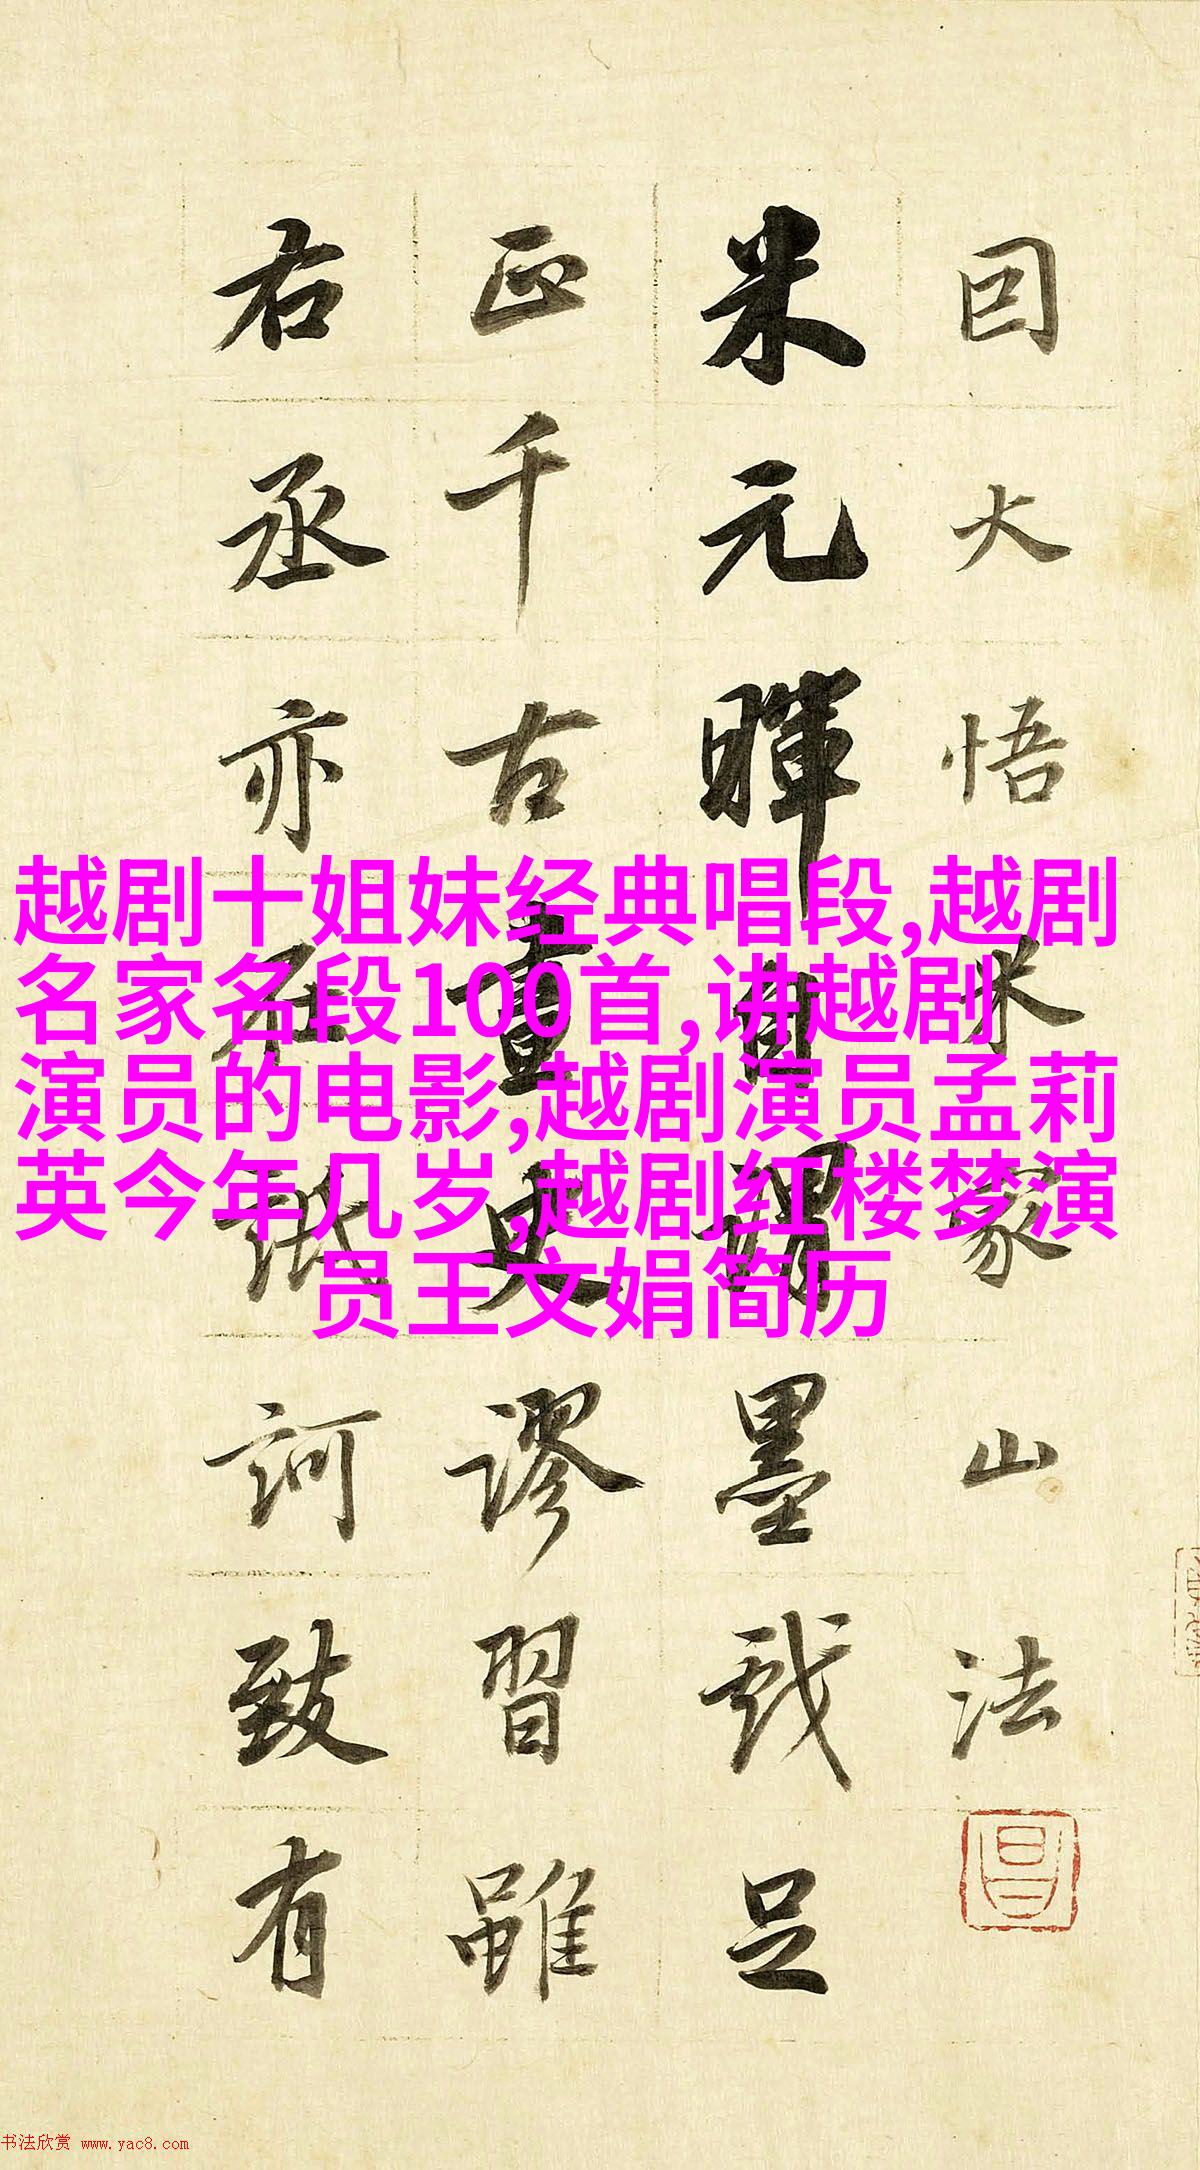 囙大悟米家山法
米元暉自謂墨戲足
正千古畫史謬習雖
右丞亦在詆訶致有
越剧十姐妹经典唱段,越剧
名家名段100首,讲越剧
演员的电影,越剧演员孟莉
英今年几岁,越剧红楼梦演
员王文娟简历
昌
书法欣赏 www.yac8.com